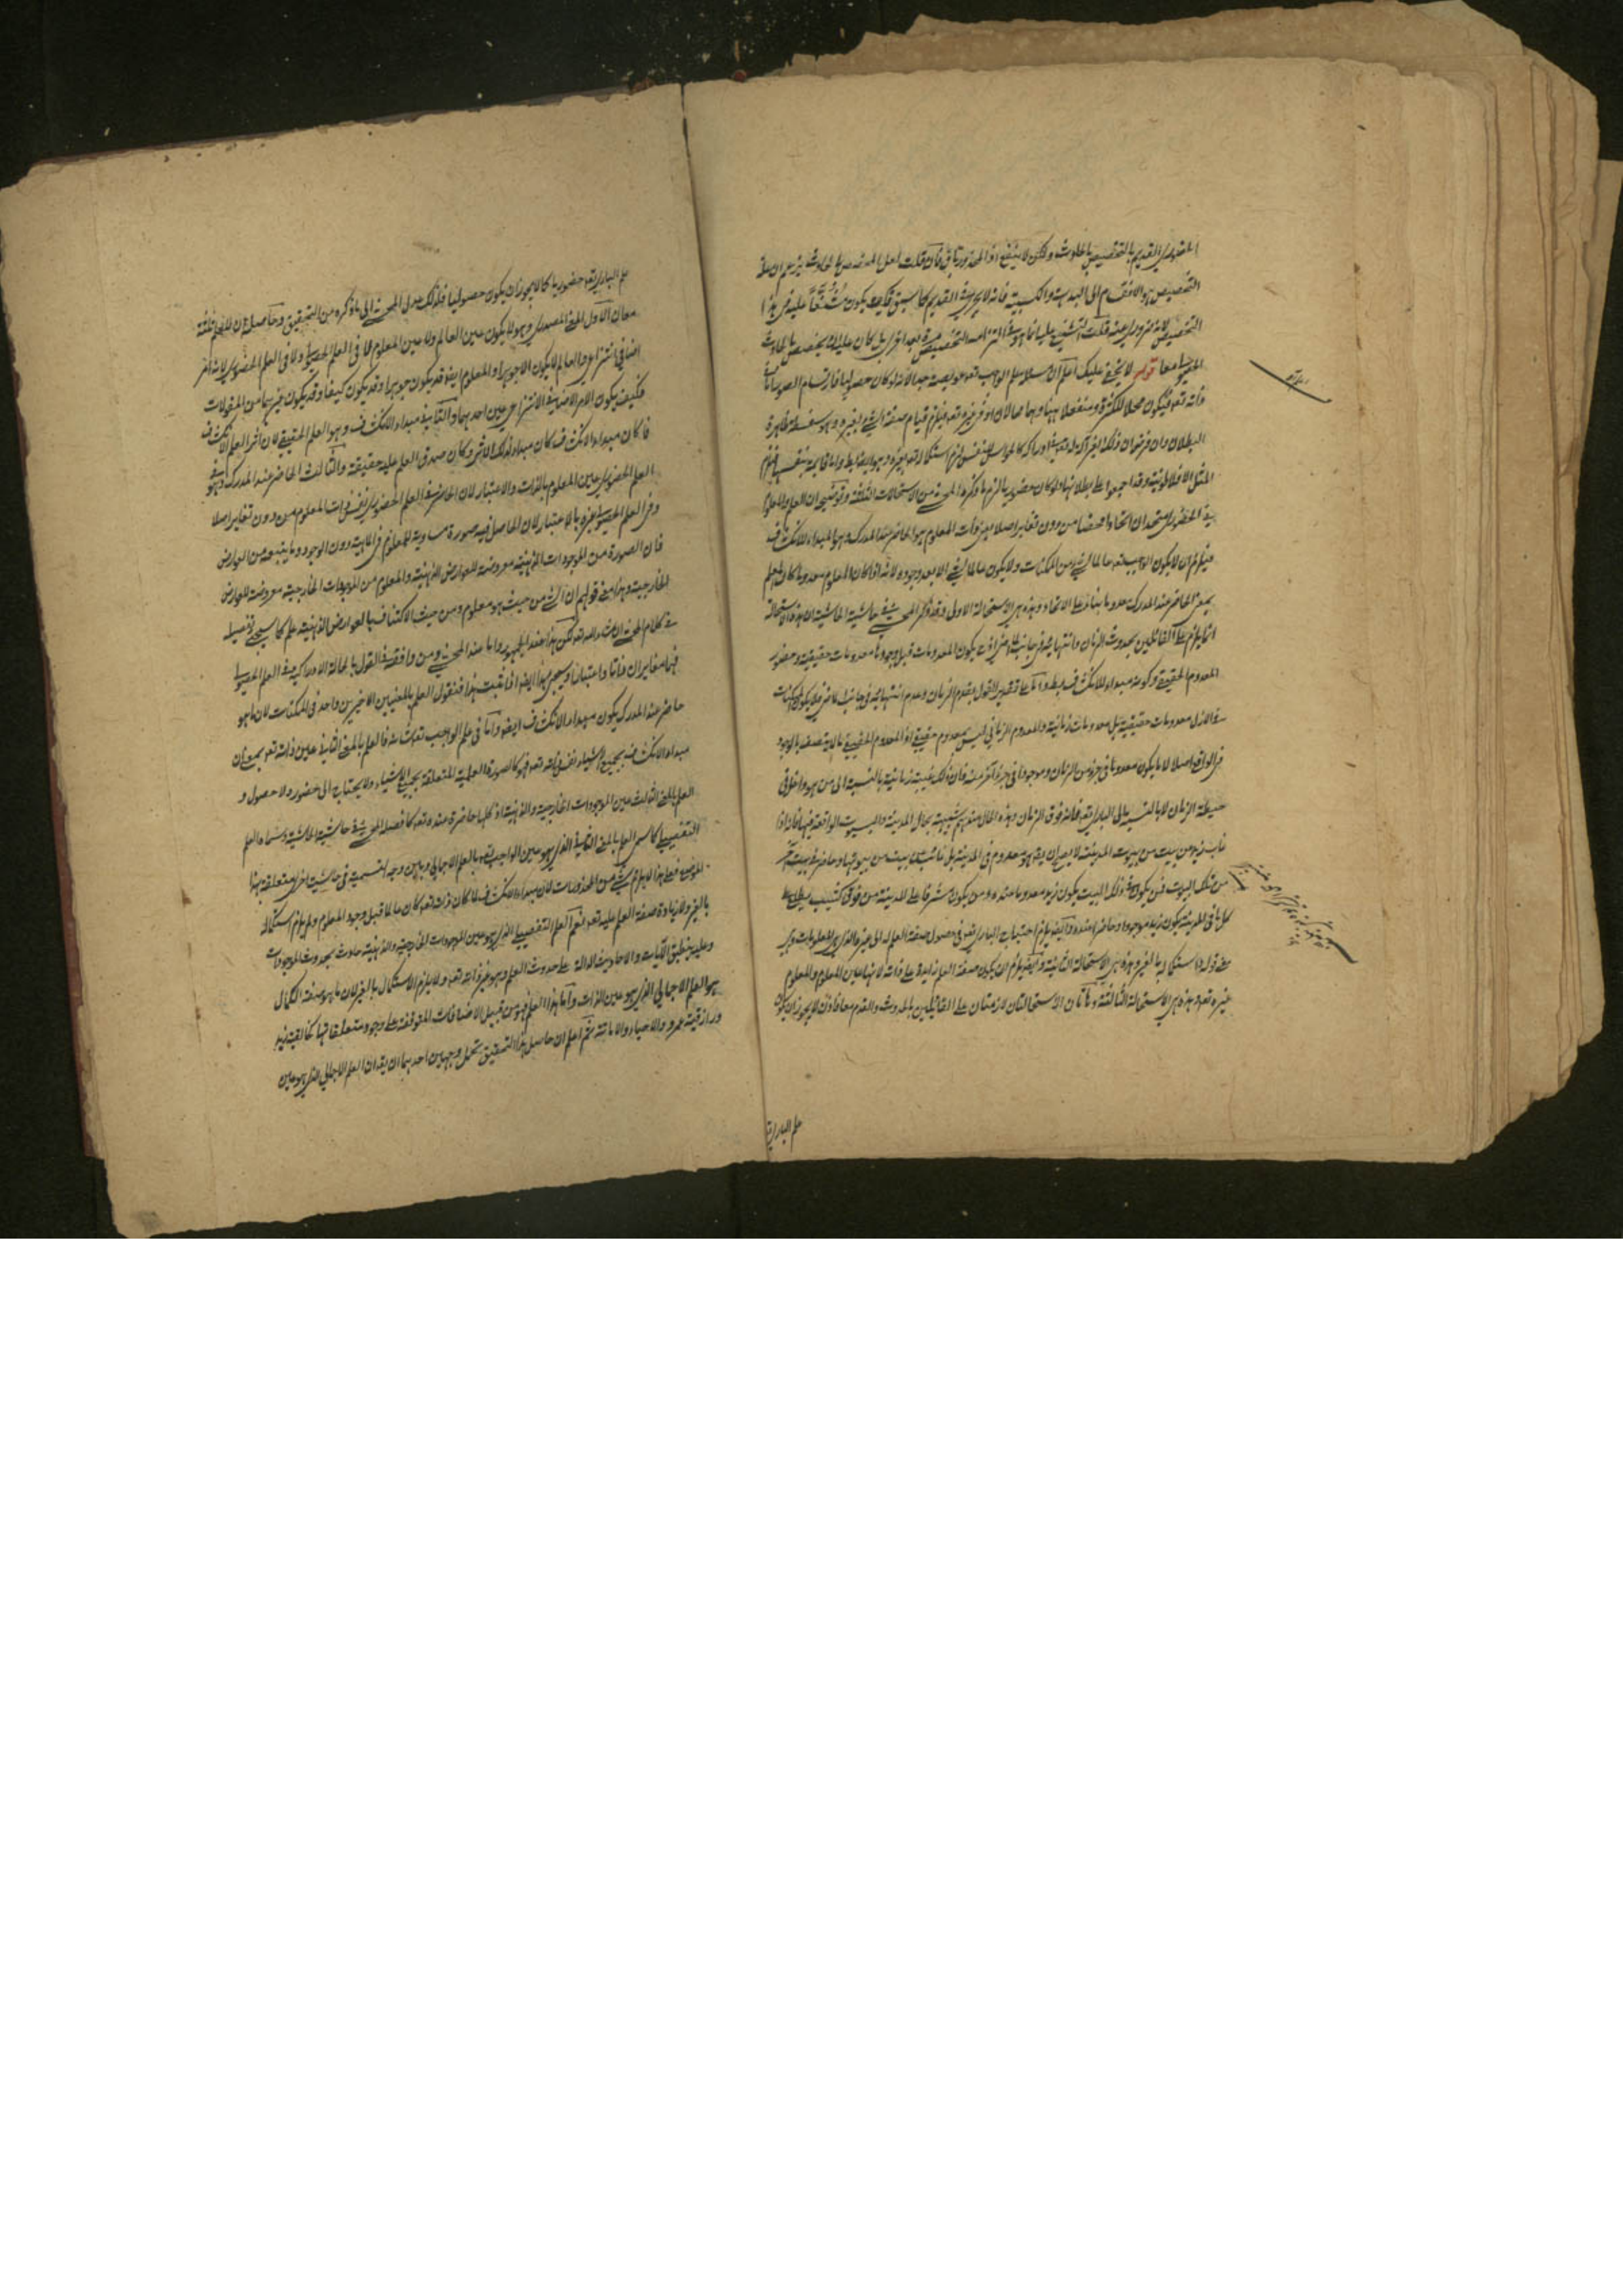 الحضوري القديم بالتخصيص بالحادث ولكن لا ينفع اذ المحذور باق فان قلت لعل المخصص بالحادث يزعم ان علة
التخصيص هو الانقسام الى البديهية والكسبية فانه لا يجري في القديم كما سبق فكيف يكون متفرعا عليه في هذا
التخصيص لانه ضروري عنه قلت التشنيع عليه انما هو في التزامه التخصيص مرة بعد اخرى بل كان عليه ان يخصص بالحادث
الحصولي معا قوله لا يخفى عليك اعلم ان مسئلة علم الواجب تعه عويصة جدا لانه لو كان حصوليا فارتسام الصور اما في
ذاته تعه فيكون محلا للكثرة ومنفعلا بها وهما محالان او في غيره تعه فيلزم قيام صفة الشيء بغيره وهو سفسطة ظاهرة
البطلان وان فرض ان ذلك الغير آلة له تعه في ادراكه كالحواس للنفس لزم استكماله تعه بغيره وهو ايضا باطل واما قائمة بنفسها فيلزم
المثل الافلاطونية وقد اجمعوا على بطلانها ولو كان حضوريا لزم ما ذكره المحشي من الاستحالات الثلثة وتوضيحه ان العلم والمعلوم
في الحضوري متحدان اتحادا محضا من دون تغاير اصلا بمعنى ذات المعلوم هو الحاضر عند المدرك وهو المبداء للانكشاف
فيلزم ان لا يكون الواجب تعه عالما لشيء من الممكنات ولا يكون عالما لشيء الا بعد وجوده لانه اذا كان المعلوم معدوما كان العلم
بمعنى الحاضر عند المدرك معدوما بناء على الاتحاد وهذه هي الاستحالة الاولى وقد ذكر المحشي في حاشية الحاشية ان هذه الاستحالة
انما يلزم على القائلين بحدوث الزمان وانتهائه في جانب الماضي اذ يكون المعدومات قبل وجودها معدومات حقيقية وحضور
المعدوم الحقيقي وكونه مبداء للانكشاف باطل واما على تقدير القول بقدم الزمان وعدم انتهائه في جانب الماضي فلا يكون الممكنات
في الازل معدومات حقيقية بل معدومات زمانية والمعدوم الزماني ليس بمعدوم حقيقي اذ المعدوم الحقيقي ما لا يتصف بالوجود
في الواقع اصلا لا ما يكون معدوما في جزء من الزمان وموجودا في جزء آخر منه فان ذلك غيبة زمانية بالنسبة الى من هو داخل في
حيطة الزمان لا بالنسبة الى الباري تعه فانه فوق الزمان وهذه الحال عندهم شبيهة بحال المدينة والبيوت الواقعة فيها فانه اذا
غاب زيد من بيت من بيوت المدينة لا يصح ان يقه هو معدوم في المدينة بل غائب عن بيت من بيوتها وحاضر في بيت آخر
من تلك البيوت فمن يكون في ذلك البيت يكون زيد معدوما عنده ومن يكون مشرفا على المدينة من فوق كثيب يطلع على
كل ما في المدينة يكون زيد موجودا وحاضرا عنده وايضا يلزم احتياج الباري تعه في حصول صفة العلم له الى غيره الذي هو المعلومات وهي
واستكماله بالغير وهذه هي الاستحالة الثانية وايضا يلزم ان يكون صفة العلم زايدة على ذاته لانها عين المعلوم والمعلوم
غيره تعه وهذه هي الاستحالة الثالثة وهاتان الاستحالتان لازمتان على القائلين بالحدوث والقدم معا فاذن لا يجوز ان يكون
علم الباري
علم الباري تعه حضوريا كما لا يجوز ان يكون حصوليا فلذلك عدل المحشي الى ما ذكره من التحقيق وحاصله ان للعلم ثلثة
معان الاول المعنى المصدري وهو لا يكون عين العالم ولا عين المعلوم لا في العلم الحصولي ولا في العلم الحضوري لانه امر
اضافي انتزاعي والعالم لا يكون الا جوهرا والمعلوم ايضا قد يكون جوهرا وقد يكون كيفا وقد يكون غيرهما من المقولات
فكيف يكون الامر الاضافي الانتزاعي عين احدهما والثاني مبداء الانكشاف وهو العلم الحقيقي لان اثر العلم الانكشاف
فما كان مبداء الانكشاف كان مبداء لذلك الاثر وكان صدق العلم عليه حقيقة والثالث الحاضر عند المدرك وهو في
العلم الحضوري عين المعلوم بالذات والاعتبار لان الحاضر في العلم الحضوري نفس ذات المعلوم من دون تغاير اصلا
وفي العلم الحصولي غيره بالاعتبار لان الحاصل فيه صورة مساوية للمعلوم في الماهية دون الوجود وما يتبعه من العوارض
فان الصورة من الموجودات الذهنية معروضة للعوارض الذهنية والمعلوم من الموجودات الخارجية معروضة للعوارض
الخارجية وهذا معنى قولهم ان الشيء من حيث هو معلوم ومن حيث الاكتناف بالعوارض الذهنية علم كما سيجيء تفصيله
في كلام المحشي ان شاء الله تعه لكن هذا عند الجمهور واما عند المحشي ومن وافقه في القول بالحالة الادراكية في العلم الحصولي
فهما متغايران ذاتا واعتبارا وسيجيء هذا ايضا اذا ثبت هذا فنقول العلم بالمعنيين الاخيرين واحد في الممكنات لان ما هو
حاضر عند المدرك يكون مبداء الانكشاف ايضا واما في علم الواجب تعه شانه فالعلم بالمعنى الثاني عين ذاته تعه بمعنى ان
مبداء الانكشاف بجميع الاشياء نفس ذاته تعه فهو كالصورة العلمية المتعلقة بجميع الاشياء ولا يحتاج الى حضور ولا حصول و
العلم بالمعنى الثالث عين الموجودات الخارجية والذهنية اذ كلها حاضرة عنده تعه كما فصله المحشي في حاشية الحاشية وسماه العلم
التفصيلي كما سمى العلم بالمعنى الثاني الذي هو عين الواجب تعه بالعلم الاجمالي وبين وجه التسمية في حاشية اخرى متعلقة بهذا
الموضع فعلى هذا لا يلزم شيء من المحذورات لان مبداء الانكشاف لما كان ذاته تعه كان عالما قبل وجود المعلوم ولم يلزم استكماله
بالغير ولا زيادة صفة العلم عليه تعه نعم العلم التفصيلي الذي هو عين الموجودات الخارجية والذهنية حادث بحدوث الموجودات
وعليه ينطبق الآيات والاحاديث الدالة على حدوث العلم وهو غير ذاته تعه ولا يلزم الاستكمال بالغير لان ما هو صفة الكمال
هو العلم الاجمالي الذي هو عين الذات واما هذا العلم فهو من قبيل الاضافات المتوقفة على وجود متعلقاتها كخالقية زيد
ورازقية عمرو والاحياء والاماتة ثم اعلم ان حاصل هذا التحقيق يحتمل وجهين احدهما ان يقه ان العلم الاجمالي الذي هو عين